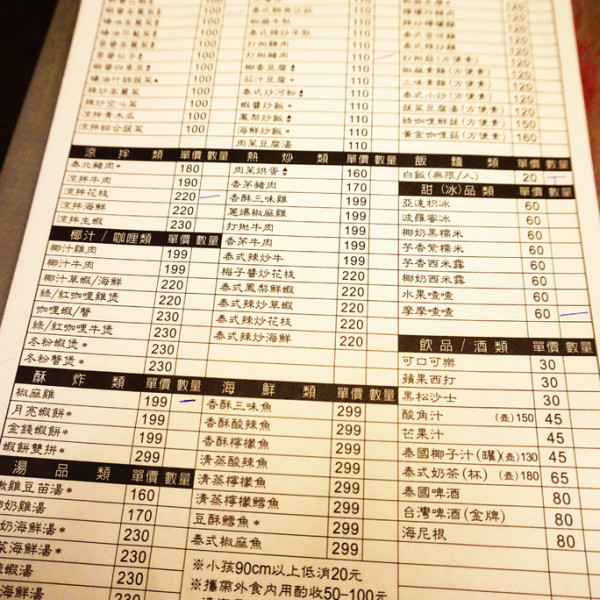 100
100
100
100
100
辣炒空心菜 100
涼拌青木瓜 100
涼拌綜合蔬菜 100
涼拌類 單價 數量
泰北豬肉* 180
涼拌牛肉 190
涼拌花枝 220
涼拌海鮮 220
涼拌生蝦 230
椰汁/咖哩類 單價 數量
椰汁雞肉 199
椰汁牛肉 199
椰汁草蝦/海鮮 220
綠/紅咖哩雞煲 220
咖哩蝦/蟹 230
綠/紅咖哩牛煲 220
冬粉蝦煲* 230
冬粉蟹煲* 230
酥炸類 單價 數量
椒麻雞 199
月亮蝦餅* 199
金錢蝦餅* 199
蝦餅雙拼* 299
湯品類 單價 數量
雞豆苗湯* 160
奶雞湯 170
奶海鮮湯* 230
海鮮湯* 230
湯 230
230
110
110
110
打拋豬肉 110
椰香豆腐 110
茄汁豆腐* 110
泰式炒河粉 110
蝦醬炒飯* 110
鳳梨炒飯 110
海鮮炒飯* 110
肉茉豆腐湯 110
熱炒類 單價 數量
肉茉烘蛋 160
香茅豬肉 170
香酥三味雞 199
蔥爆椒麻雞 199
打拋牛肉 199
香茅牛肉 199
泰式辣炒牛 199
梅子醬炒花枝 220
泰式鳳梨鮮蝦 220
泰式辣炒草蝦 220
泰式辣炒花枝 220
泰式辣炒海鮮 220
海鮮類 單價 數量
香酥三味魚 299
香酥酸辣魚 299
香酥檸檬魚 299
清蒸酸辣魚 299
清蒸檸檬魚 299
清蒸檸檬鱈魚 299
豆酥鱈魚* 299
泰式椒麻魚 299
※小孩90cm以上低消20元
※攜帶外食內用酌收50-100元
120
120
120
打拋菇(方便素) 120
椒麻菇(方便素) 120
三味素雞(方便素) 120
泰式小炒(方便素) 120
蔬菜豆腐湯(方便素) 120
綠咖哩鮮菇(方便素) 150
黃金咖哩菇(方便素) 160
飯麵類 單價 數量
白飯(無限/人) 20
甜(冰)品類 單價 數量
亞達枳冰 60
波羅蜜冰 60
椰奶黑糯米 60
芋香紫糯米 60
芋香西米露 60
椰奶西米露 60
水果喳喳 60
摩摩喳喳 60
飲品/酒類 單價 數量
可口可樂 30
蘋果西打 30
黑松沙士 30
酸角汁 (壺)150 45
芒果汁 45
泰國椰子汁(罐)(壺)130 45
泰式奶茶(杯) (壺)180 65
泰國啤酒 80
台灣啤酒(金牌) 80
海尼根 80